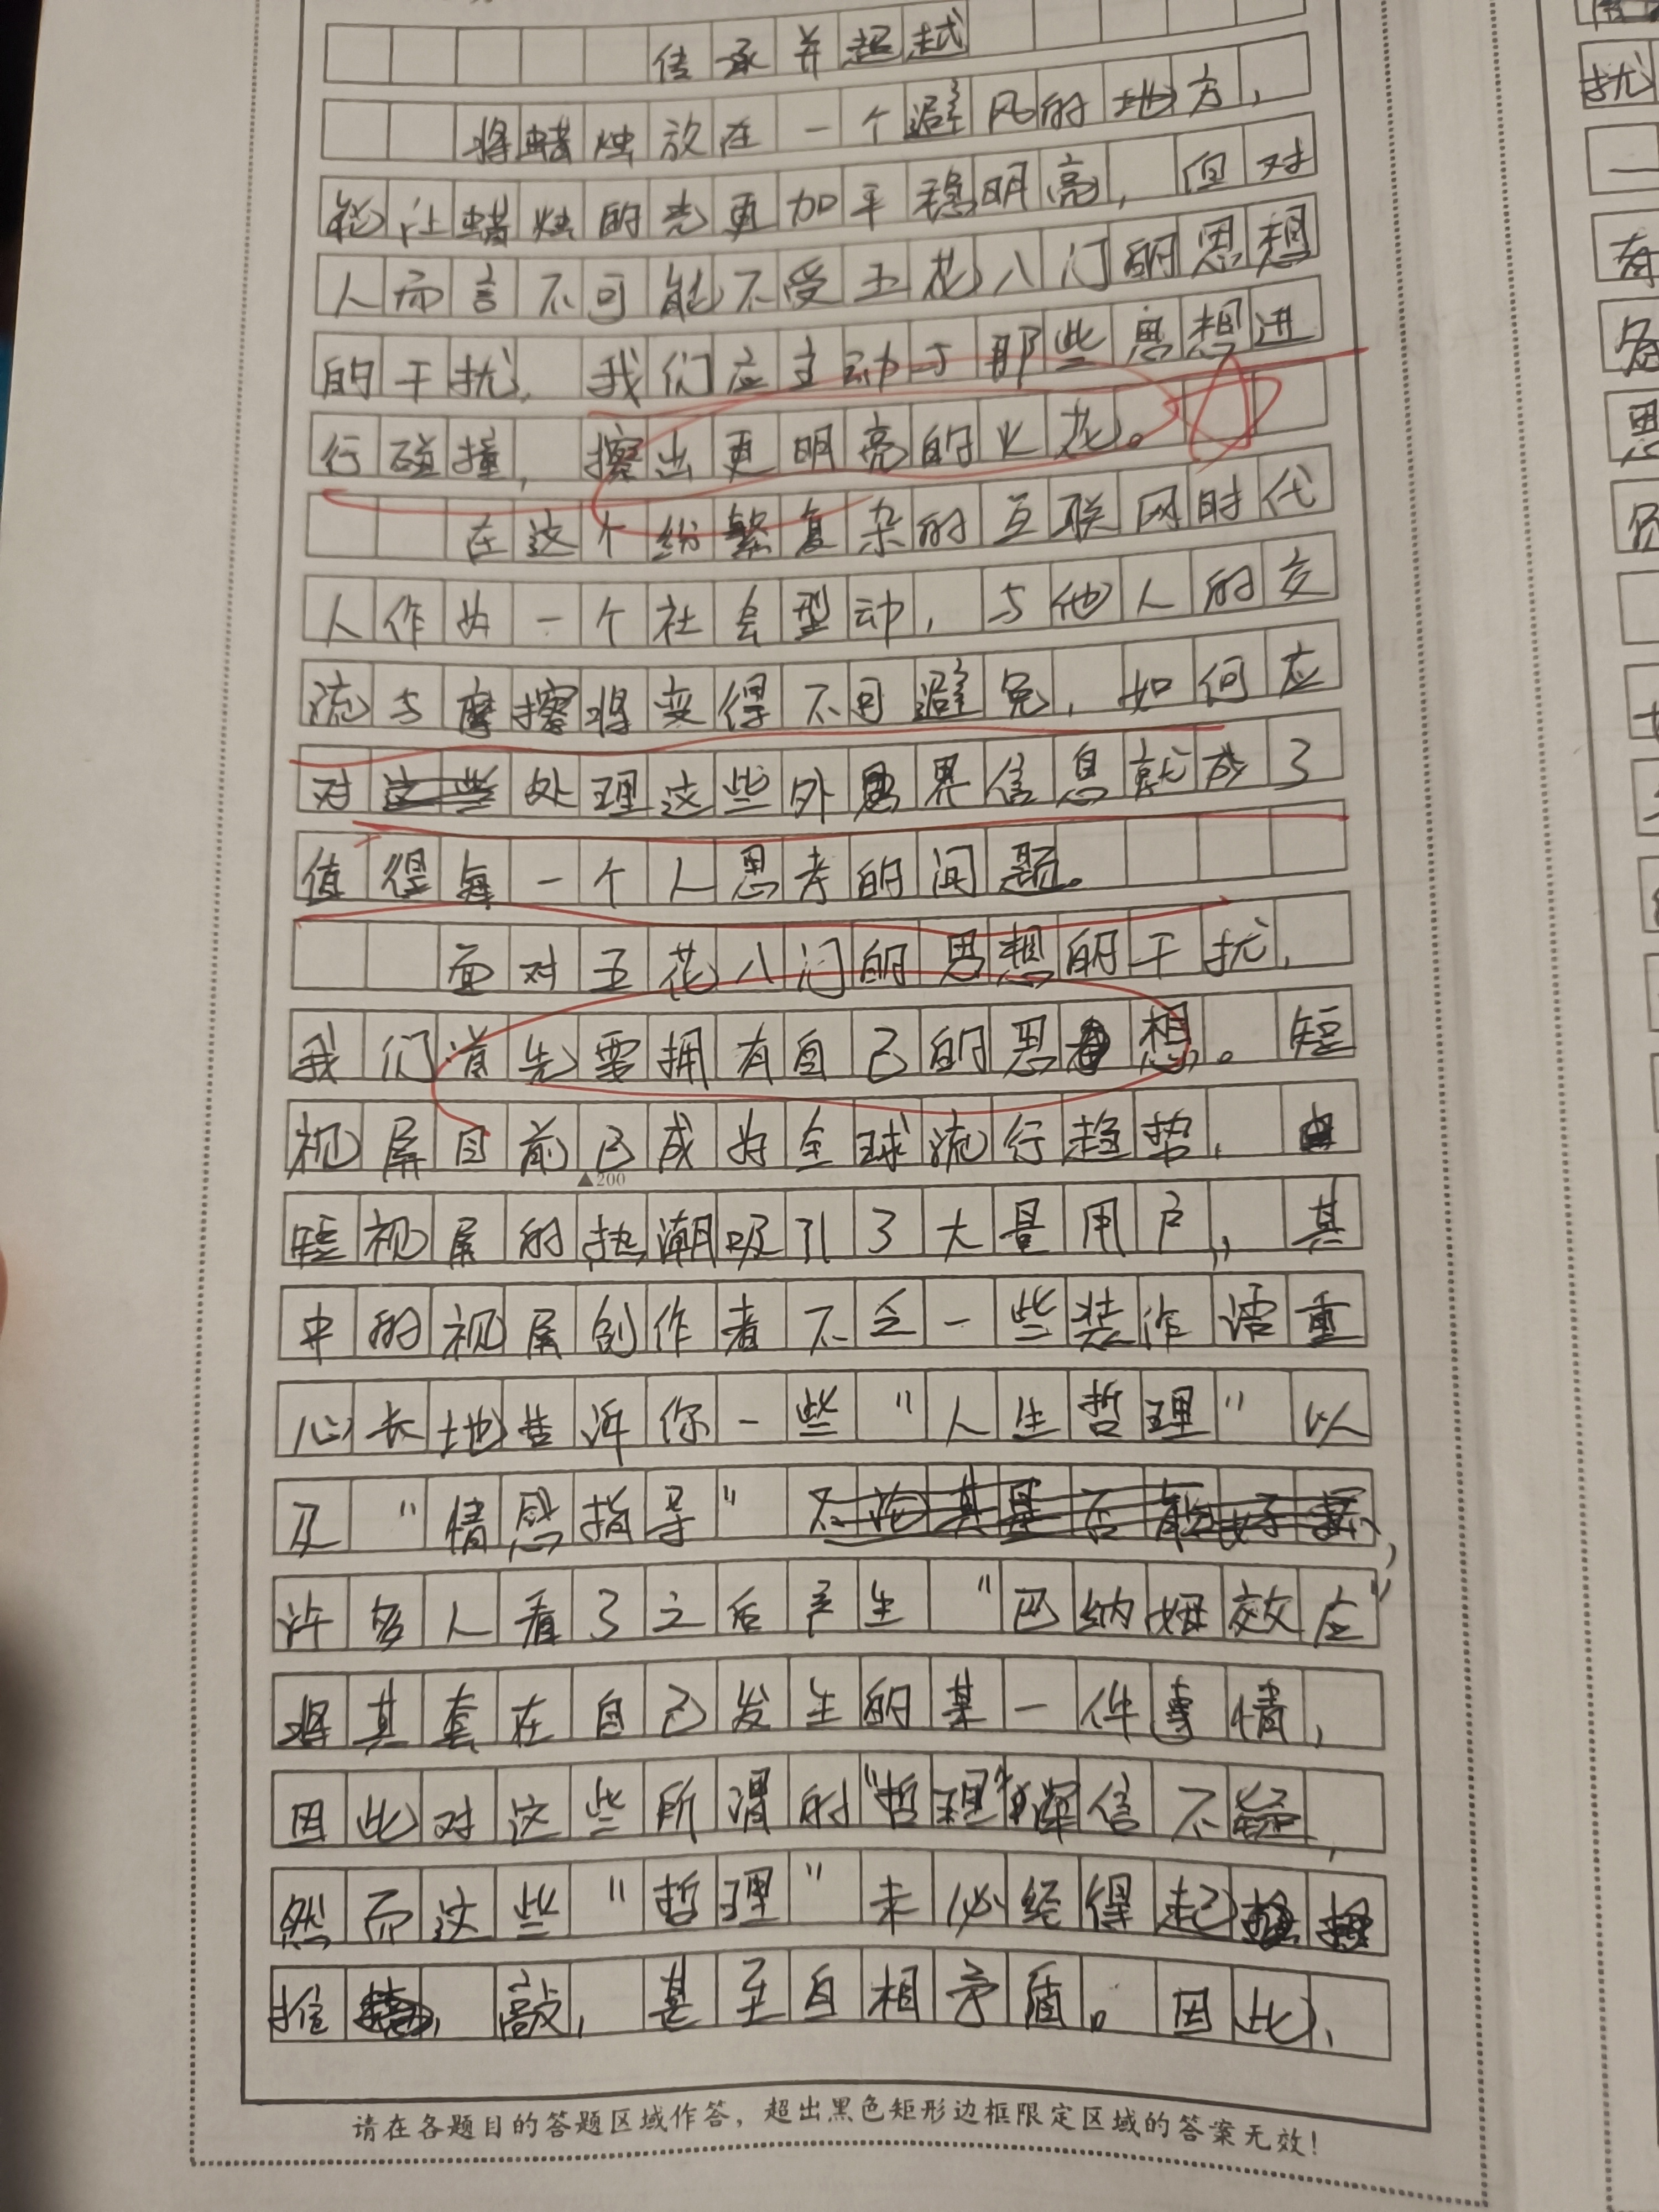 传承并超越
将蜡烛放在一个避风的地方，
能让蜡烛的光更加平稳明亮，但对
人而言不可能不受五花八门的思想
的干扰，我们应主动于那些思想进
行碰撞，擦出更明亮的火花。
在这个纷繁复杂的互联网时代
人作为一个社会型动，与他人的交
流与摩擦将变得不可避免，如何应
对处理这些外界信息就成了
值得每一个人思考的问题。
面对五花八门的思想的干扰，
我们首先需拥有自己的思想。短
视屏目前已成为全球流行趋势，
▲200
短视屏的热潮吸引了大量用户，其
中的视屏创作者不乏一些装作语重
心长地告诉你一些“人生哲理”以
及“情感指导”，
许多人看了之后产生“巴纳姆效应”
将其套在自己发生的某一件事情，
因此对这些所谓的“哲理”深信不疑，
然而这些“哲理”未必经得起
推敲，甚至自相矛盾。因此，
请在各题目的答题区域作答，超出黑色矩形边框限定区域的答案无效！
扰
一
有
各
思